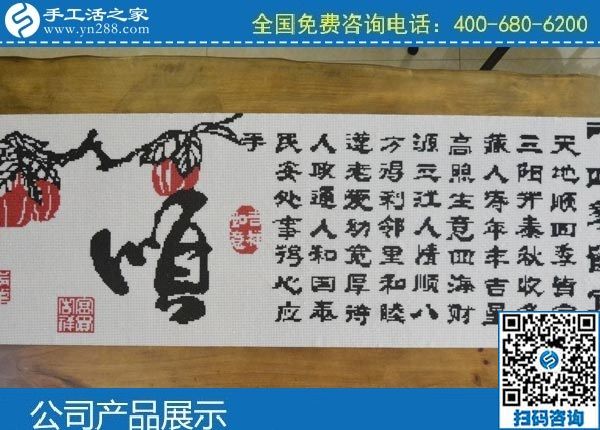 手工活之家
www.yn288.com
全国免费咨询电话：400-680-6200
天地顺四季皆宜
三阳开泰秋收冬
藏人寿年丰吉星
高照生意四海财
源三江人情顺八
方得利邻里和睦
尊老爱幼宽厚待
人政通人和国泰
民安处事称心应
手
吉祥如意
顺
公司产品展示
扫码咨询